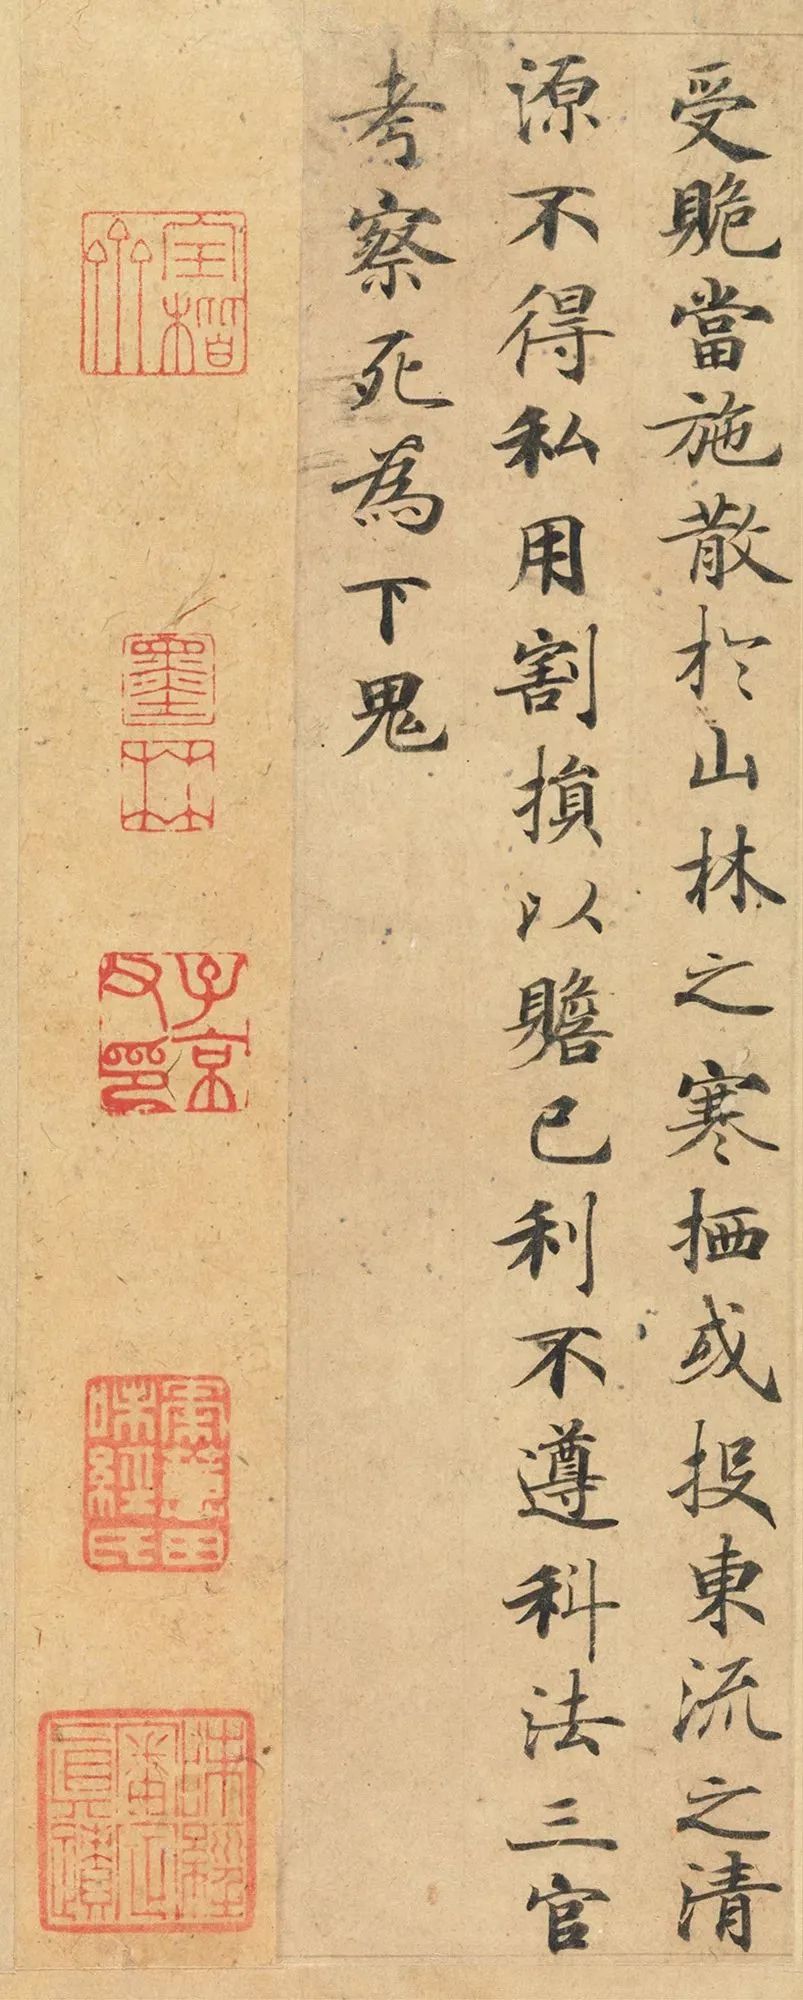 受賍當施散於山林之寒栖或投東流之清
源不得私用割損以贍己利不遵科法三官
考察死為下鬼
墨林
子京父印